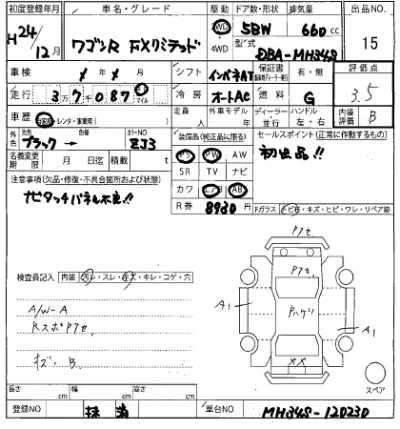 初度登録年月 車名・グレード 駆動 ドア数・形状 排気量 出品NO.
H24/12月 ワゴンR FXリミテッド 2WD 4WD 5BW 660cc 15
型式 DBA-MH34S
車検 / 年 / 月 シフト インパネAT 保証書 有・無 評価点
走行 3万7千087 マイル 冷房 オートAC 燃料 G 3.5
車歴 自家用・レンタ・事業用( ) 定員 人 外車モデル 年 ディーラー 並行 ハンドル 左・右 内装評価 B
外色 元色 ブラック → 色替 カラーNO ZJ3 装備品(純正品に限る) セールスポイント(正常に作動するもの)
名義変更期限 月 日迄 積載 t PS PW AW 初出品!!
注意事項(欠品・修復・不具合箇所および状態) SR TV ナビ
ナビタッチパネル不良!! カワ エアB ABS
R券 8930円 Fガラス トビ・キズ・ヒビ・ワレ・リペア跡
検査員記入 内装 汚レ・スレ・キズ・キレ・コゲ・穴
A/W-A
RスポPアセ
キズ・B
Pアセ
Pアセ
Pハゲリ
A1
A1
XX
スペア
長さ cm 幅 cm 高さ cm
登録NO 抹消 車台NO MH34S-120230